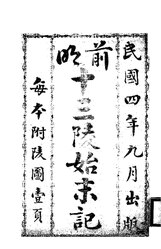 民國四年九月出版
前明
十三陵始末記
每本附陵圖壹頁